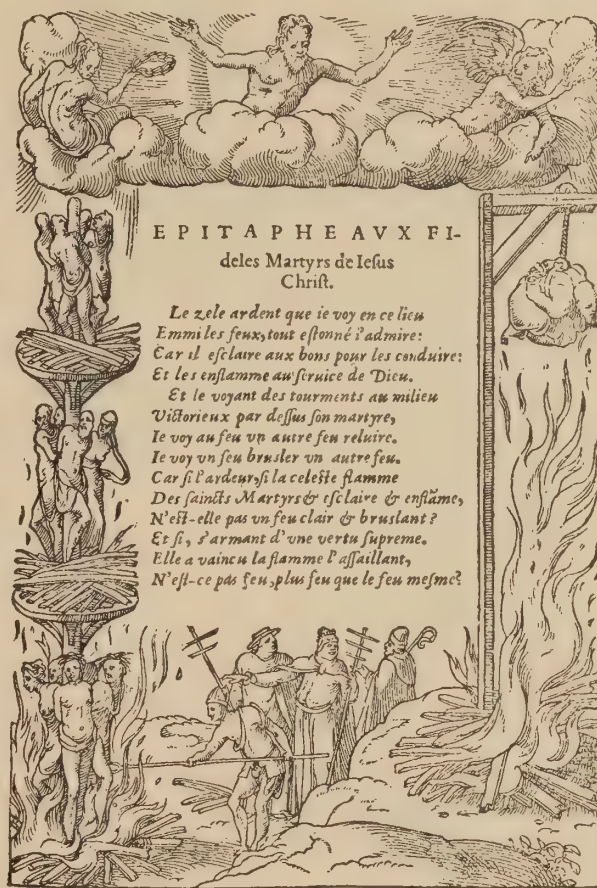 EPITAPHE AVX FI-
deles Martyrs de Iesus
Christ.
Le zele ardent que ie voy en ce lieu
Emmi les feux, tout estonné i'admire:
Car il esclaire aux bons pour les conduire:
Et les enflamme au seruice de Dieu.
Et le voyant des tourments au milieu
Victorieux par dessus son martyre,
Ie voy au feu vn autre feu reluire.
Ie voy vn feu brusler vn autre feu.
Car si l'ardeur, si la celeste flamme
Des saincts Martyrs & esclaire & enflãme,
N'est-elle pas vn feu clair & bruslant?
Et si, s'armant d'vne vertu supreme.
Elle a vaincu la flamme l'assaillant,
N'est-ce pas feu, plus feu que le feu mesme?